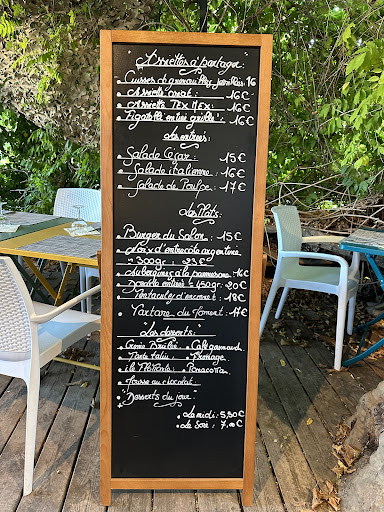 Assiettes à partager:
Cuisses de grenouilles persillées: 16
Assiette
Assiette TEX MEX: 16€
16€
Les entrées:
Salade César: 15€
Salade italienne: 16€
Salade de Poulpe: 17€
Les Plats:
Burger du Salon: 15€
entrecôte argentine
300gr
Aubergines à la parmesane 16€
450gr. 20€
18€
Tartare du Moment
Les desserts:
Crème Brulée Café gourmand
Fromage
Ile Flottante Panacotta
Mousse au chocolat
Desserts du jour
Le midi: 5,50€
Le Soir: 7,00€